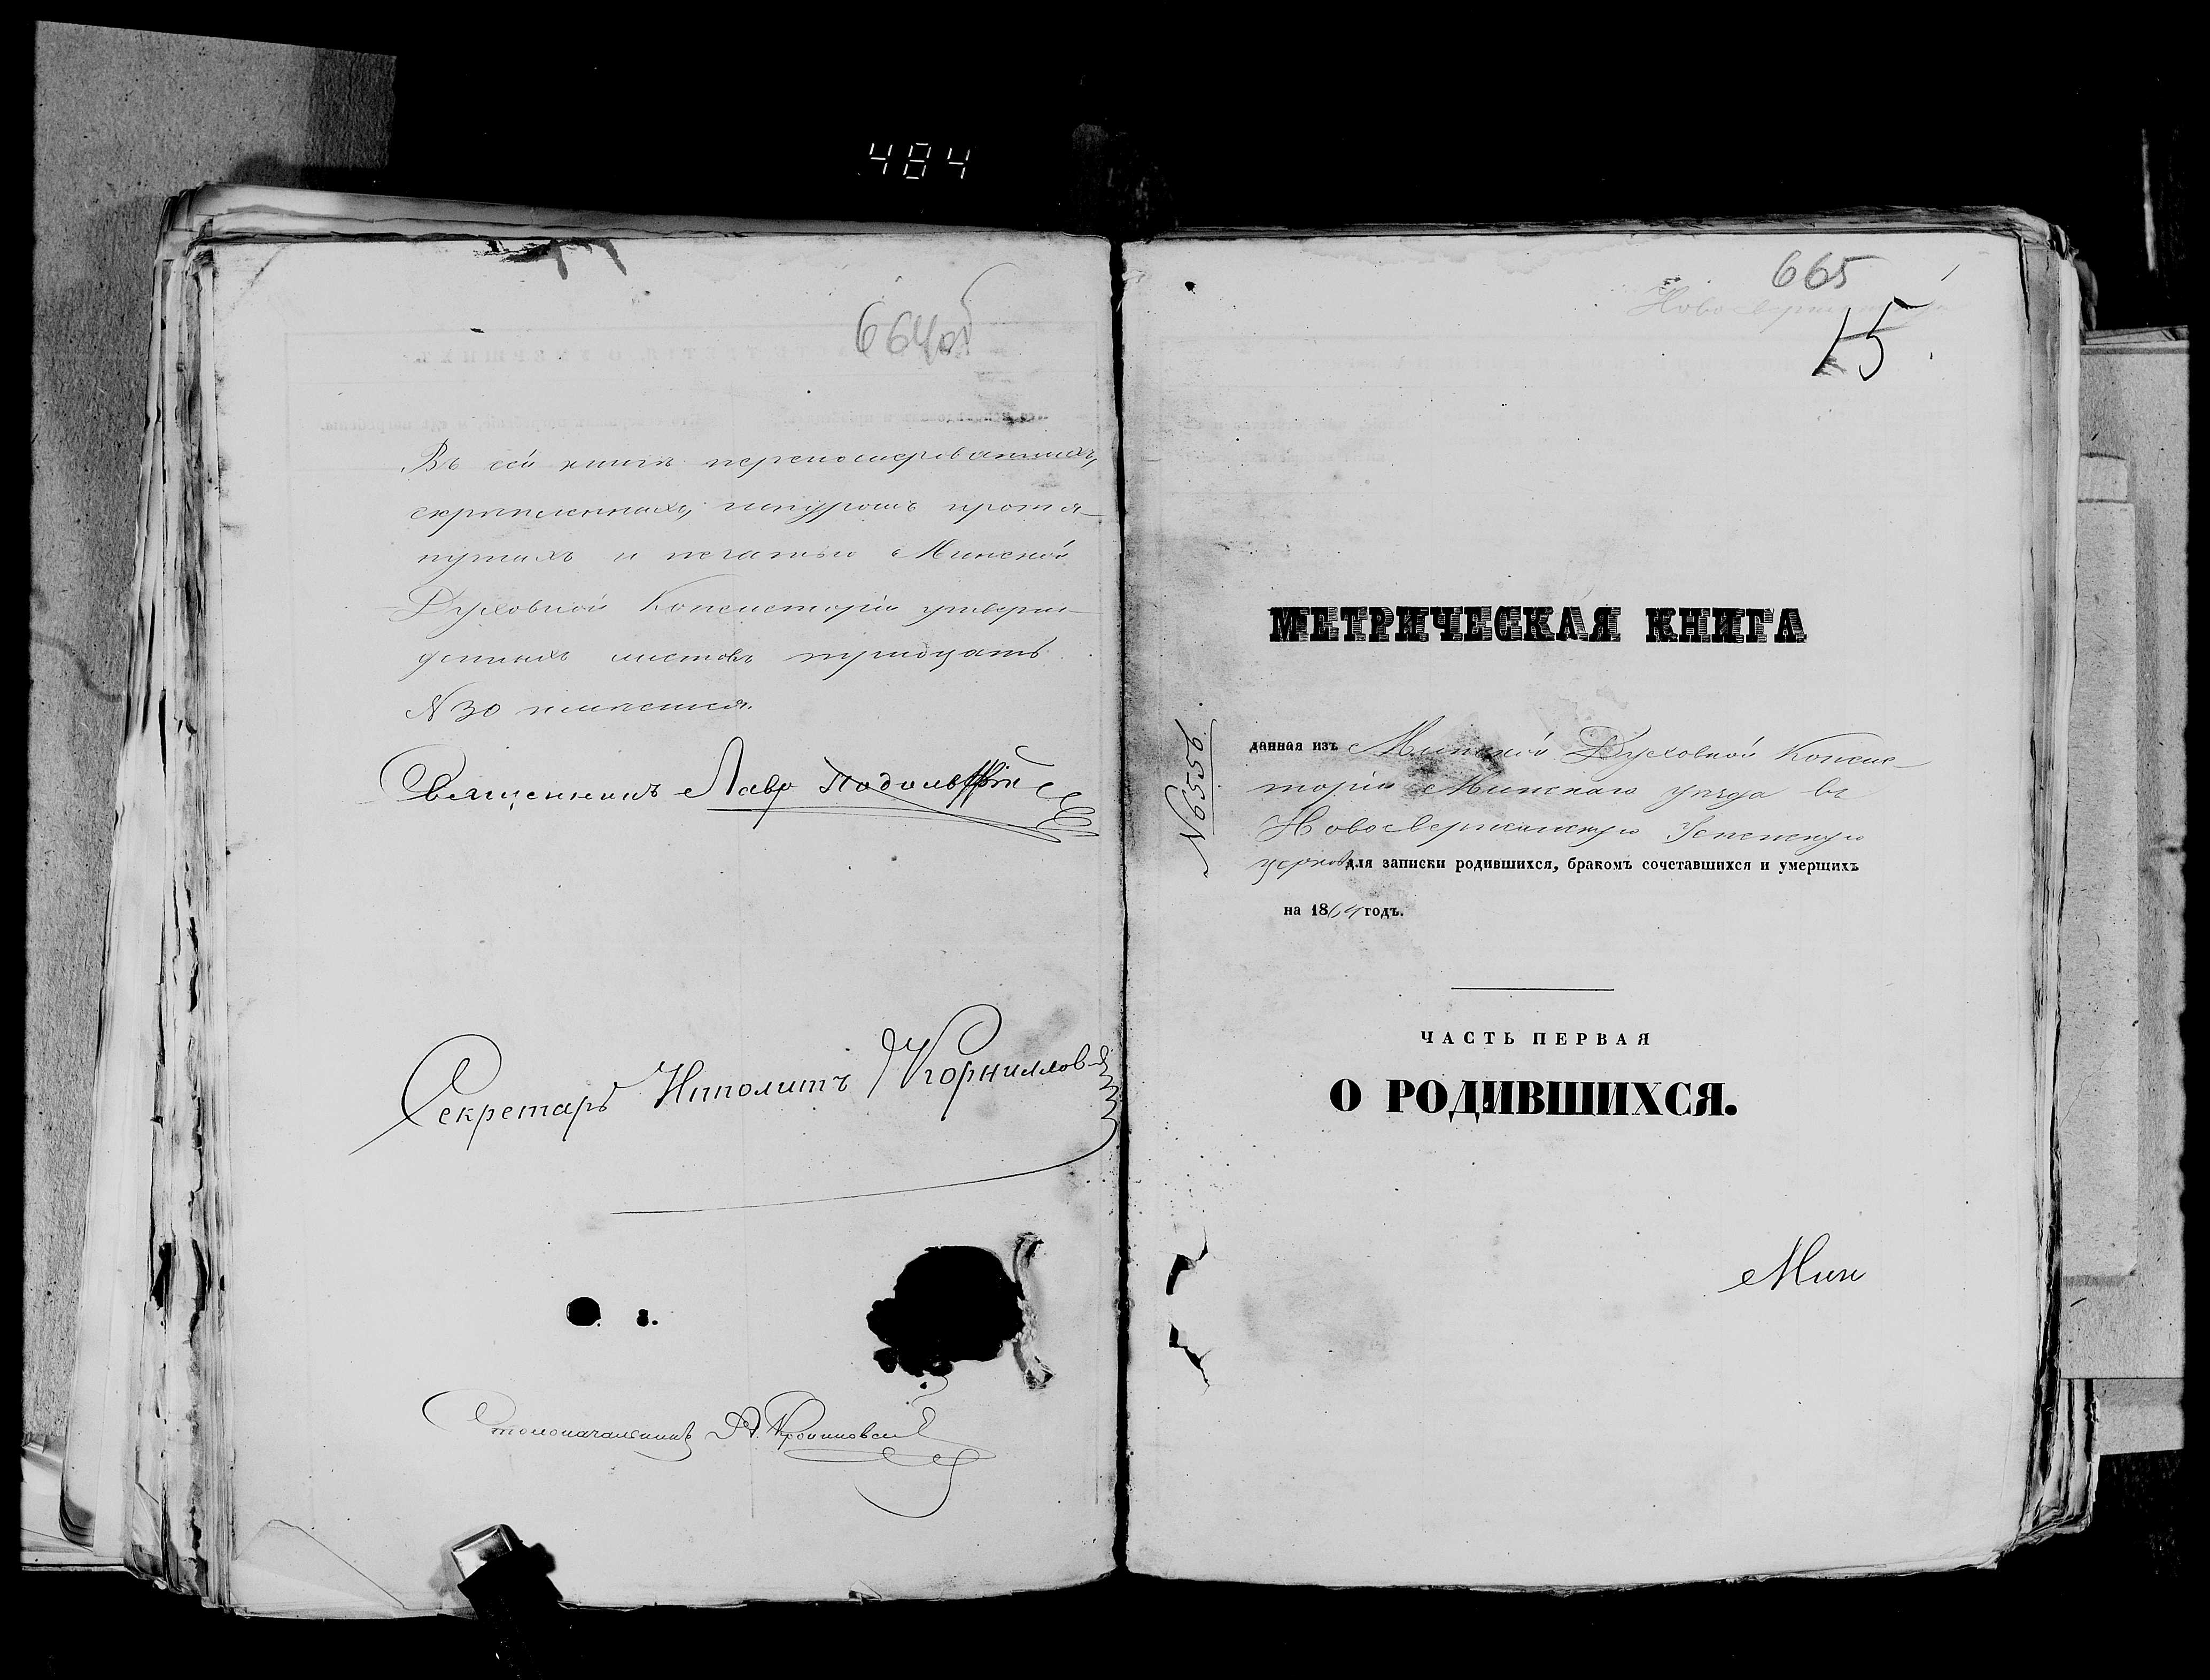 484
664об
Въ сей книгѣ перенумерованныхъ,
скрѣпленныхъ, шнуромъ протя-
нутыхъ и печатью Минской
Духовной Консисторіи утверж-
денныхъ листовъ тридцать
N 30 имѣется.
Священникъ Лавр Подольскій
Секретарь Ипполитъ Корниллов
Столоначальникъ А.
665
1
Ново
15
МЕТРИЧЕСКАЯ КНИГА
N 6556.
данная изъ Минской Духовной Консис-
торіи Минскаго уѣзда въ
Новосверженскую Успенскую
церковь для записки родившихся, бракомъ сочетавшихся и умершихъ
на 1864 годъ.
ЧАСТЬ ПЕРВАЯ
О РОДИВШИХСЯ.
Мин